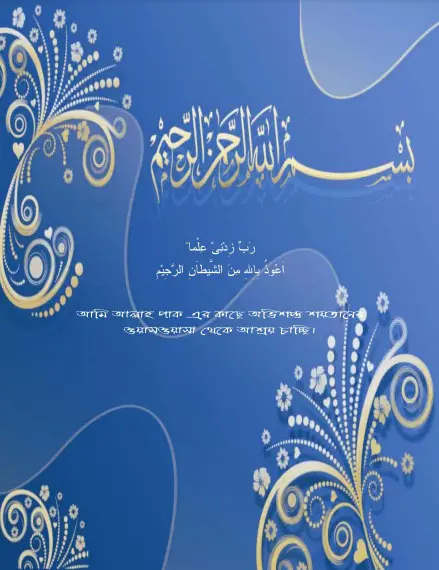 بسم الله الرحمن الرحيم
رَبِّ زِدْنِیْ عِلْما ً
اَعُوذُ بِاللهِ مِنَ الشَّيْطَانِ الرَّجِيْمِ
আমি আল্লাহ পাক এর কাছে অভিশপ্ত শয়তানের
ওয়াসওয়াসা থেকে আশ্রয় চাচ্ছি।